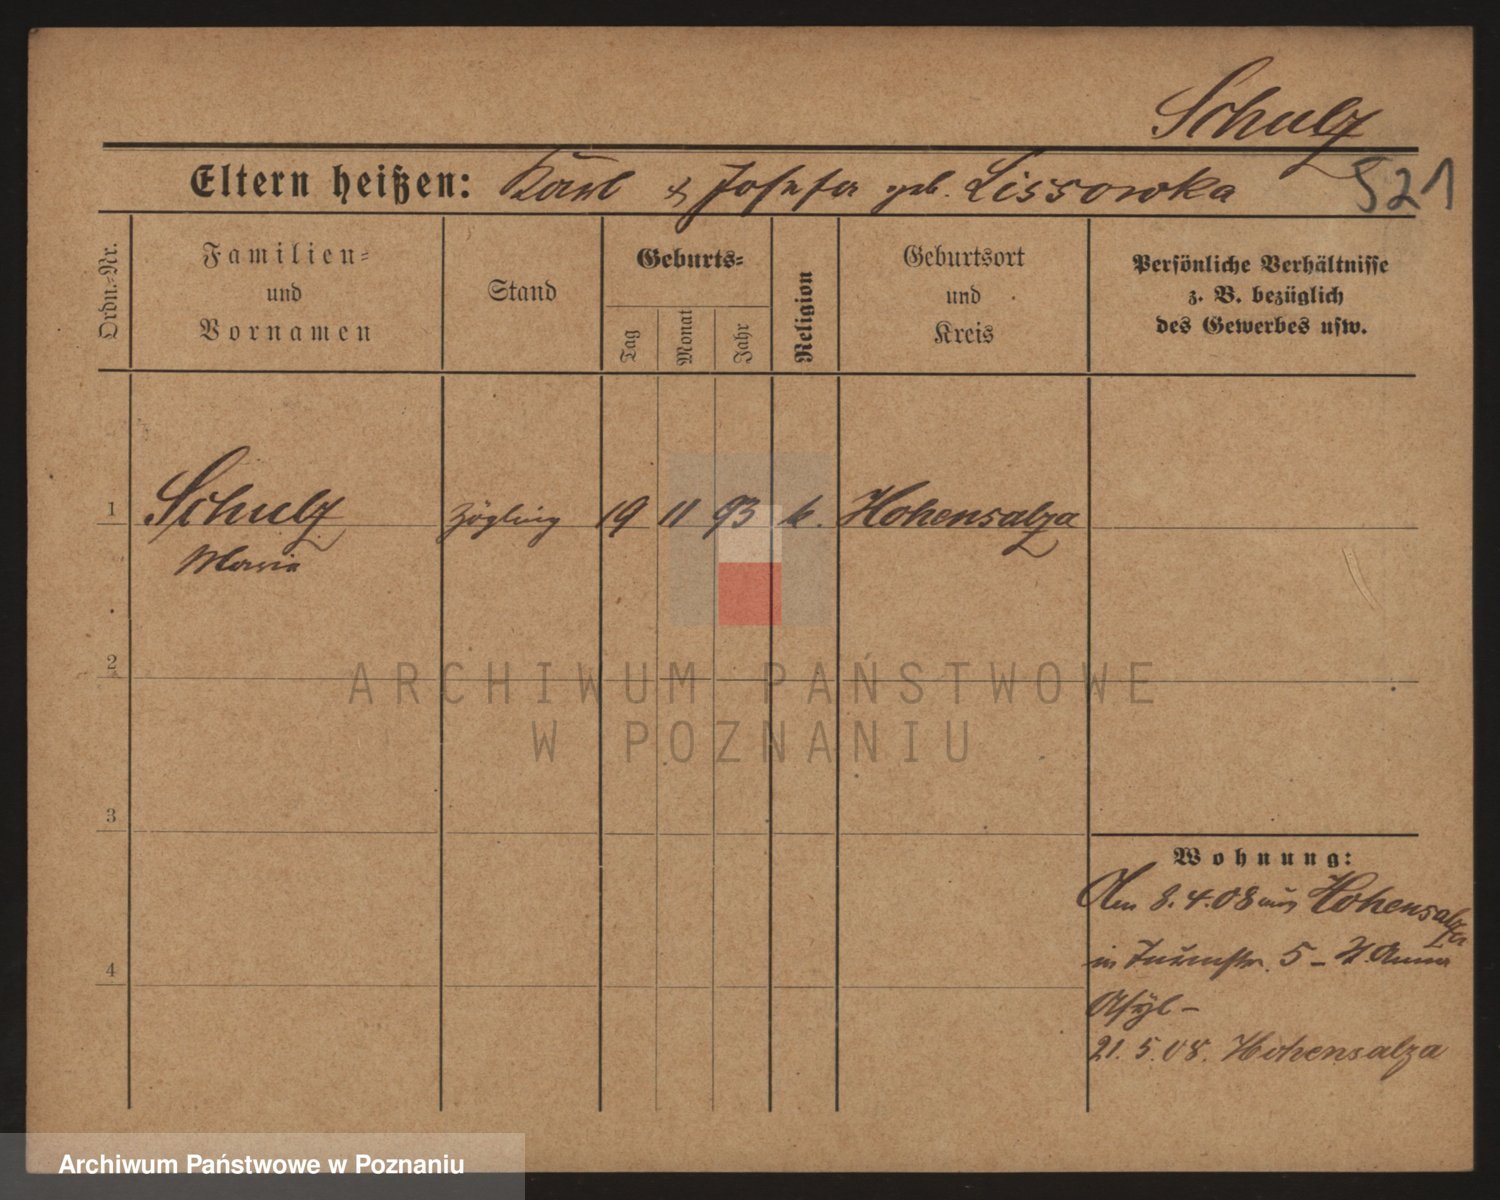 Schulz
Eltern heißen: Karl & Josefa geb. Lissowka
521
Ordn.-Nr.
Familien-
und
Vornamen
Stand
Geburts-
Tag
Monat
Jahr
Religion
Geburtsort
und
Kreis
Persönliche Verhältnisse
z. B. bezüglich
des Gewerbes usw.
1
Schulz
Marie
Zögling
19
11
93
k.
Hohensalza
2
ARCHIWUM PAŃSTWOWE
W POZNANIU
3
4
Wohnung:
Am 8.4.08 aus Hohensalza
in 5 - St. Anna
Asyl -
21.5.08. Hohensalza
Archiwum Państwowe w Poznaniu